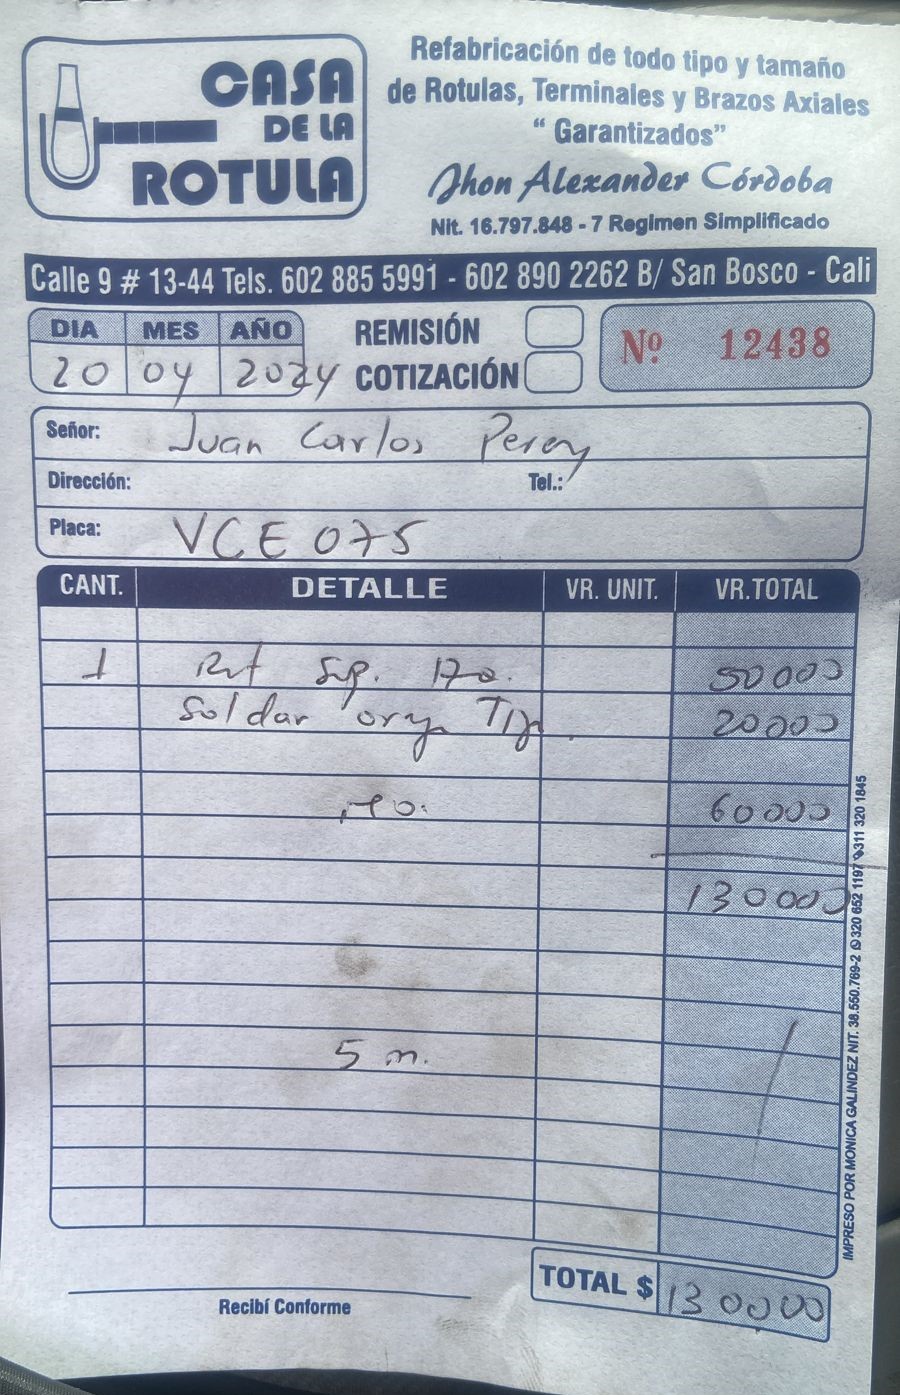 CASA
DE LA
ROTULA
Refabricación de todo tipo y tamaño
de Rotulas, Terminales y Brazos Axiales
“ Garantizados”
Jhon Alexander Córdoba
Nit. 16.797.848 - 7 Regimen Simplificado
Calle 9 # 13-44 Tels. 602 885 5991 - 602 890 2262 B/ San Bosco - Cali
DIA MES AÑO
20 04 2024
REMISIÓN
COTIZACIÓN
Nº 12438
Señor: Juan Carlos Perez
Dirección: Tel.:
Placa: VCE 075
CANT. DETALLE VR. UNIT. VR.TOTAL
1 Rot Sup. 50000
Soldar 20000
60000
130000
5 m.
TOTAL $ 130000
Recibí Conforme
IMPRESO POR MONICA GALINDEZ NIT. 38.550.769-2 320 652 1197 311 320 1845